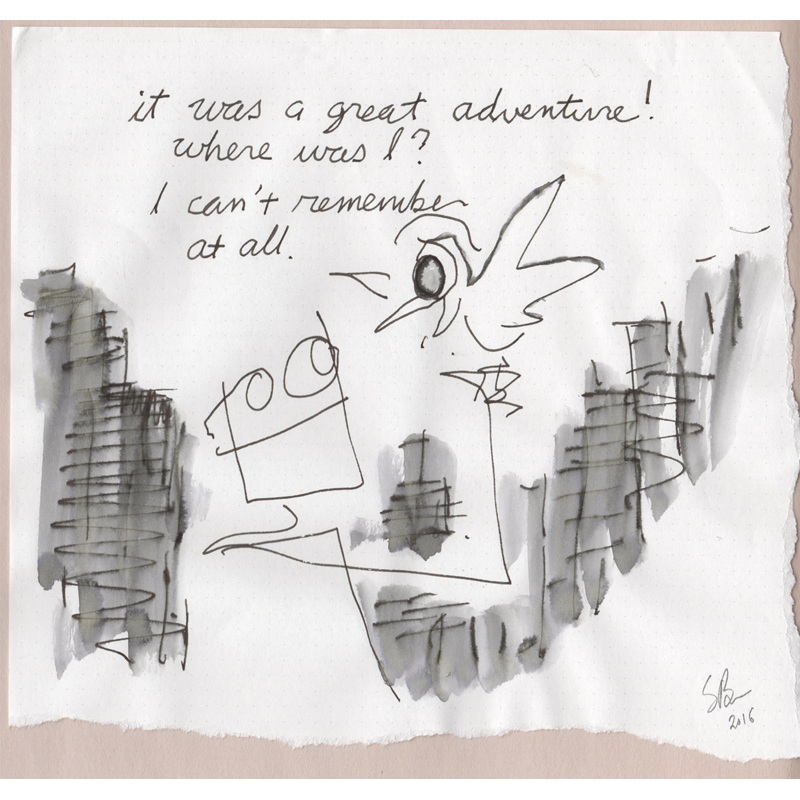 it was a great adventure!
where was I?
I can't remember
at all.
2016